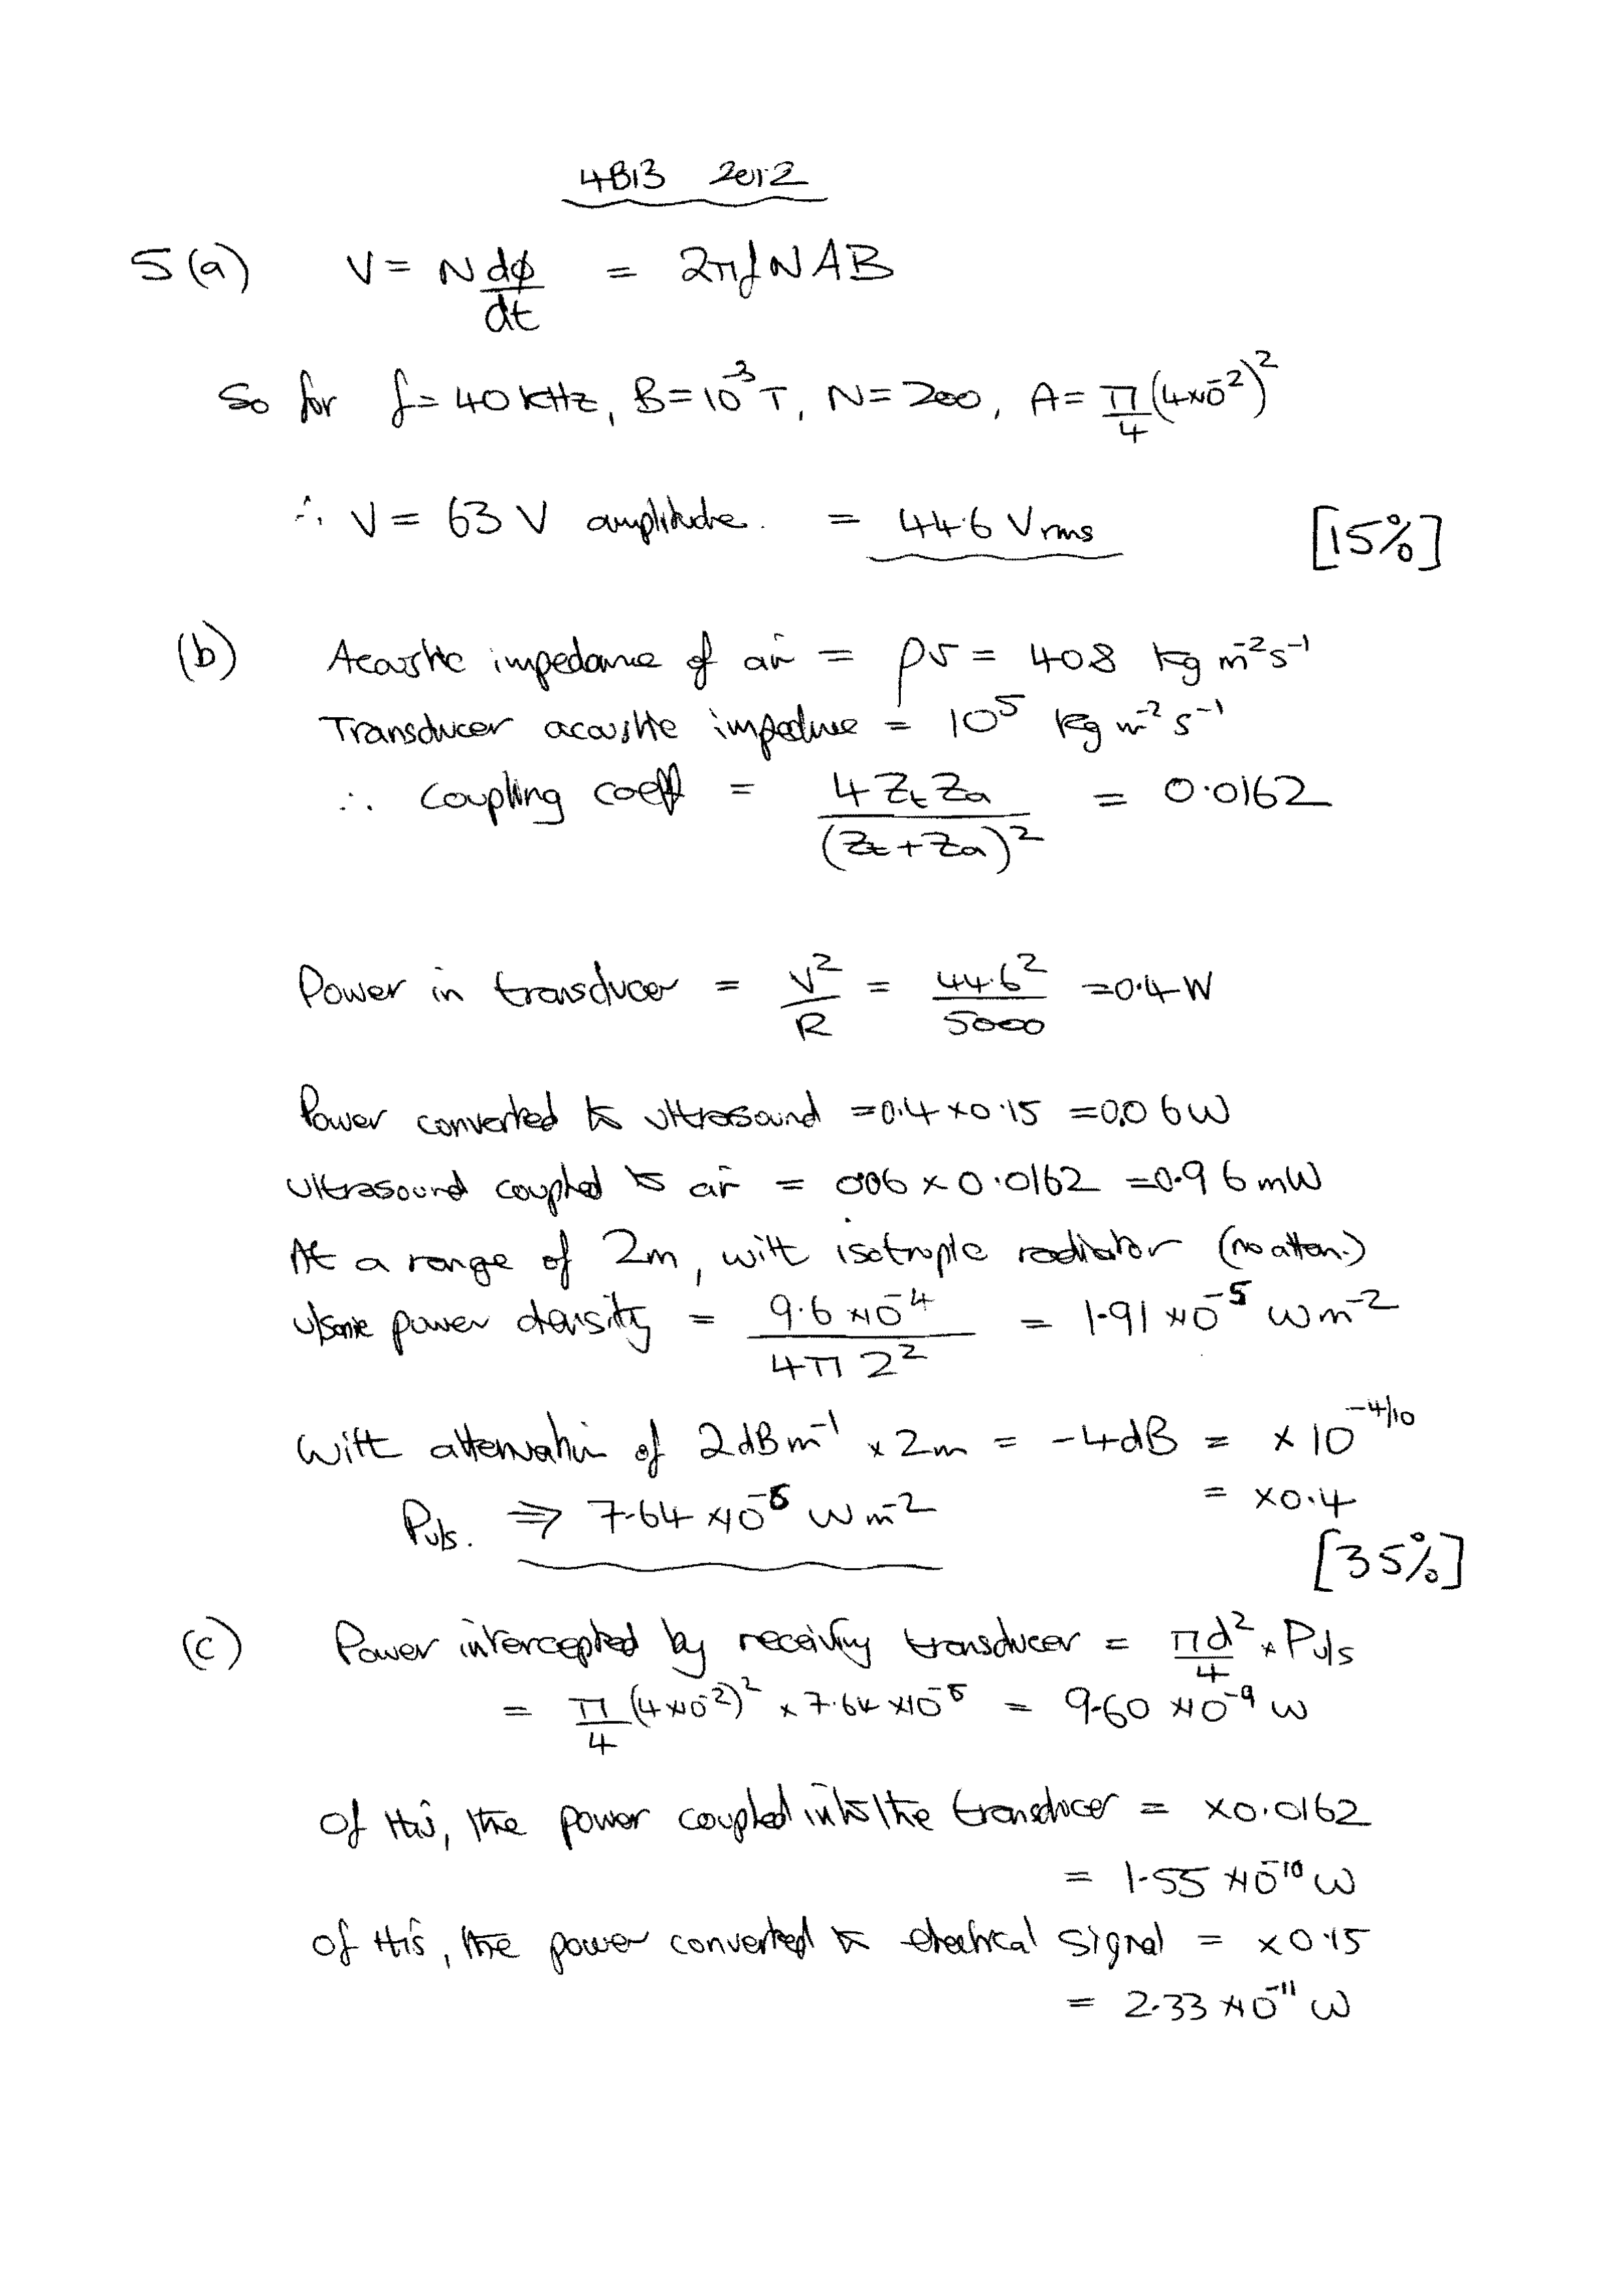 4B13 2012
5(a) V = N dφ/dt = 2πfNAB
So for f = 40 kHz, B = 10⁻³ T, N = 200, A = π/4 (4×10⁻²)²
∴ V = 63 V amplitude. = 44.6 Vrms [15%]
(b) Acoustic impedance of air = ρv = 408 kg m⁻² s⁻¹
Transducer acoustic impedance = 10⁵ kg m⁻² s⁻¹
∴ Coupling coeff = 4 Zt Za / (Zt + Za)² = 0.0162
Power in transducer = V²/R = 44.6²/5000 = 0.4 W
Power converted to ultrasound = 0.4 × 0.15 = 0.06 W
Ultrasound coupled to air = 0.06 × 0.0162 = 0.96 mW
At a range of 2m, with isotropic radiator (no atten.)
u/sonic power density = 9.6 × 10⁻⁴ / 4π 2² = 1.91 × 10⁻⁵ W m⁻²
With attenuation of 2 dB m⁻¹ × 2m = -4dB = × 10^(-4/10)
= × 0.4
Pu/s. ⇒ 7.64 × 10⁻⁶ W m⁻² [35%]
(c) Power intercepted by receiving transducer = πd²/4 × Pu/s
= π/4 (4×10⁻²)² × 7.64 × 10⁻⁶ = 9.60 × 10⁻⁹ W
Of this, the power coupled into the transducer = × 0.0162
= 1.55 × 10⁻¹⁰ W
Of this, the power converted to electrical signal = × 0.15
= 2.33 × 10⁻¹¹ W